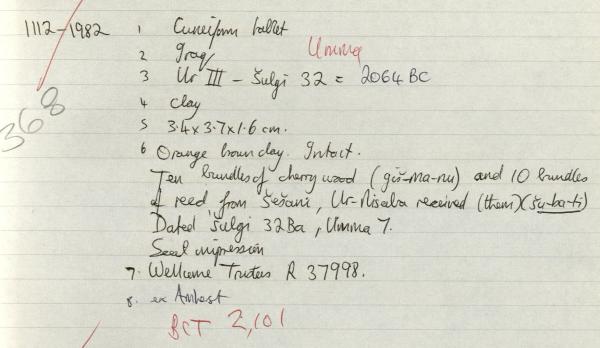 1112-1982 1 Cuneiform tablet
2 Iraq Umma
3 Ur III - Šulgi 32 = 2064 BC
368
4 Clay
5 3.4 x 3.7 x 1.6 cm.
6 Orange brown clay. Intact.
Ten bundles of cherry wood (giš-ma-nu) and 10 bundles
of reed from Šešani, Ur-Nisaba received (them) (šu-ba-ti)
Dated Šulgi 32Ba, Umma 7.
Seal impression
7. Wellcome Trustees R 37998.
8. ex
BCT 2,101